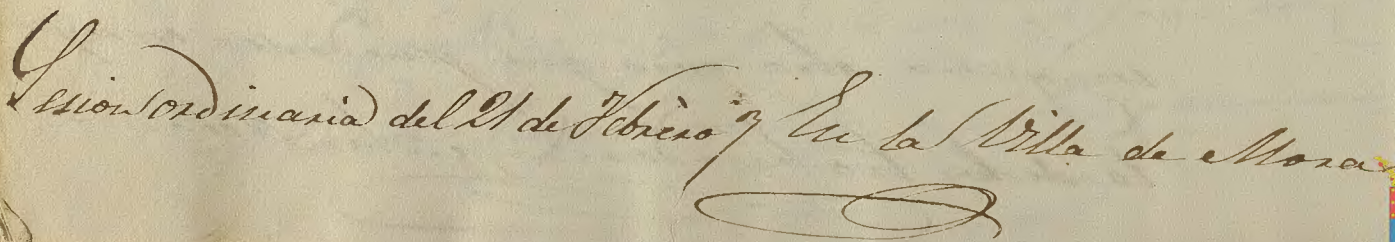 Sesion ordinaria del 21 de Febrero En la Villa de Mora